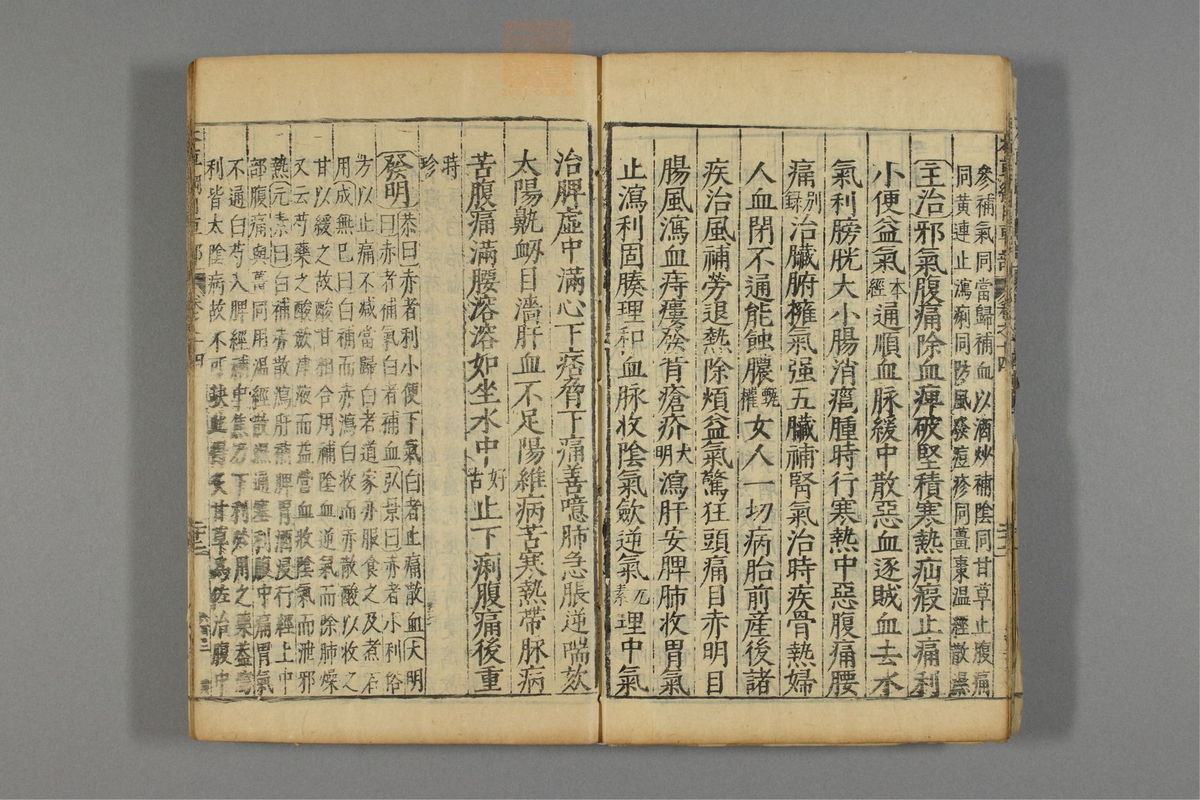 參補氣同當歸補血以酒炒補陰同甘草止腹痛
同黃連止瀉痢同防風發痘疹同薑棗溫經散濕
主治邪氣腹痛除血痺破堅積寒熱疝瘕止痛利
小便益氣本經通順血脉緩中散惡血逐賊血去水
氣利膀胱大小腸消癰腫時行寒熱中惡腹痛腰
痛別録治臟腑擁氣强五臟補腎氣治時疾骨熱婦
人血閉不通能蝕膿甄權女人一切病胎前産後諸
疾治風補勞退熱除煩益氣驚狂頭痛目赤明目
腸風瀉血痔瘻發背瘡疥大明瀉肝安脾肺收胃氣
止瀉利固腠理和血脉收陰氣歛逆氣元素理中氣
治脾虛中滿心下痞脅下痛善噫肺急脹逆喘欬
太陽鼽衂目濇肝血不足陽維病苦寒熱帶脉病
苦腹痛滿腰溶溶如坐水中好古止下痢腹痛後重
時珍
發明恭曰赤者利小便下氣白者止痛散血大明
曰赤者補氣白者補血弘景曰赤者小利俗
方以止痛不减當歸白者道家亦服食之及煮石
用成無已曰白補而赤瀉白收而赤散酸以收之
甘以緩之故酸甘相合用補陰血逆氣而除肺燥
又云芍藥之酸歛津液而益營血收陰氣而泄邪
熱元素曰白補赤散瀉肝補脾胃酒浸行經止中
部腹痛與薑同用溫經散濕通塞利腹中痛胃氣
不通白芍入脾經補中焦乃下利必用之藥蓋瀉
利皆太陰病故不可缺此得炙甘草為佐治腹中